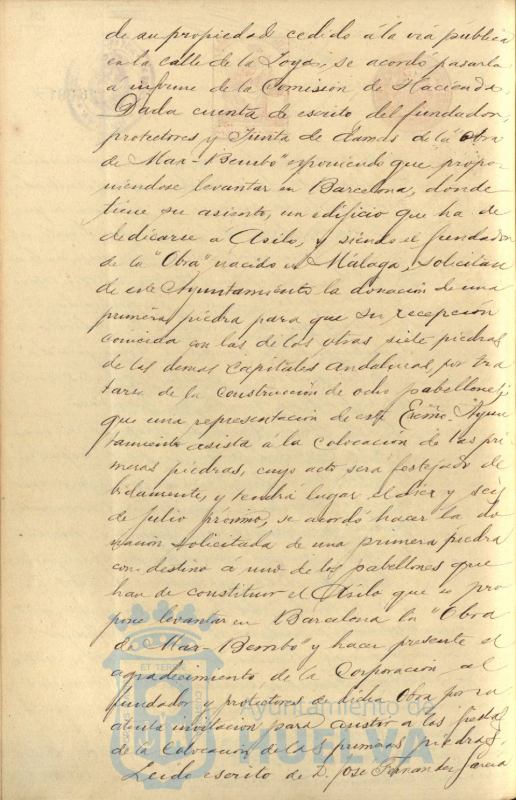 de su propiedad cedido á la via publica
en la calle de la Joya, se acordó pasarla
a informe de la Comisión de Hacienda.
Dada cuenta de escrito del fundador,
protectores y Junta de damas de la "Obra
de Mar-Bembo" exponiendo que propo-
niéndose levantar en Barcelona, donde
tiene su asiento, un edificio que ha de
dedicarse á Asilo, y siendo el fundador
de la "Obra" nacido en Málaga, solicitan
de este Ayuntamiento la donación de una
primera piedra para que su recepción
coincida con las de las otras siete piedras
de las demas capitales andaluzas, por tra
tarse de la construcción de ocho pabellones, y
que una representación de este Excmo. Ayun
tamiento asista á la colocación de las pri
meras piedras, cuyo acto será festejado de
bidamente, y tendrá lugar el diez y seis
de julio próximo, se acordó hacer la do
nación solicitada de una primera piedra
con destino a uno de los pabellones que
han de constituir el Asilo que se pro
pone levantar en Barcelona la "Obra
de Mar-Bembo" y hacer presente el
agradecimiento de la Corporación al
fundador y protectores de dicha Obra por su
atenta invitación para asistir a las fiestas
de la colocación de las primeras piedras.
Leido escrito de D. José Fernandez García
Ayuntamiento de
HUELVA